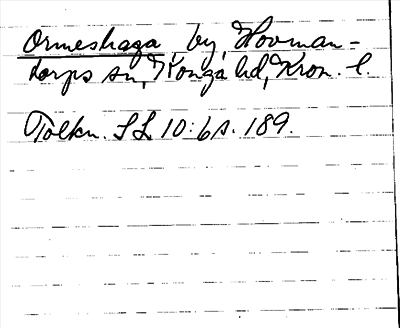 Ormeshaga, by, Hovman-
torps sn, Konga hd, Kron. l.
Tolkn. SL 10:6 s. 189.